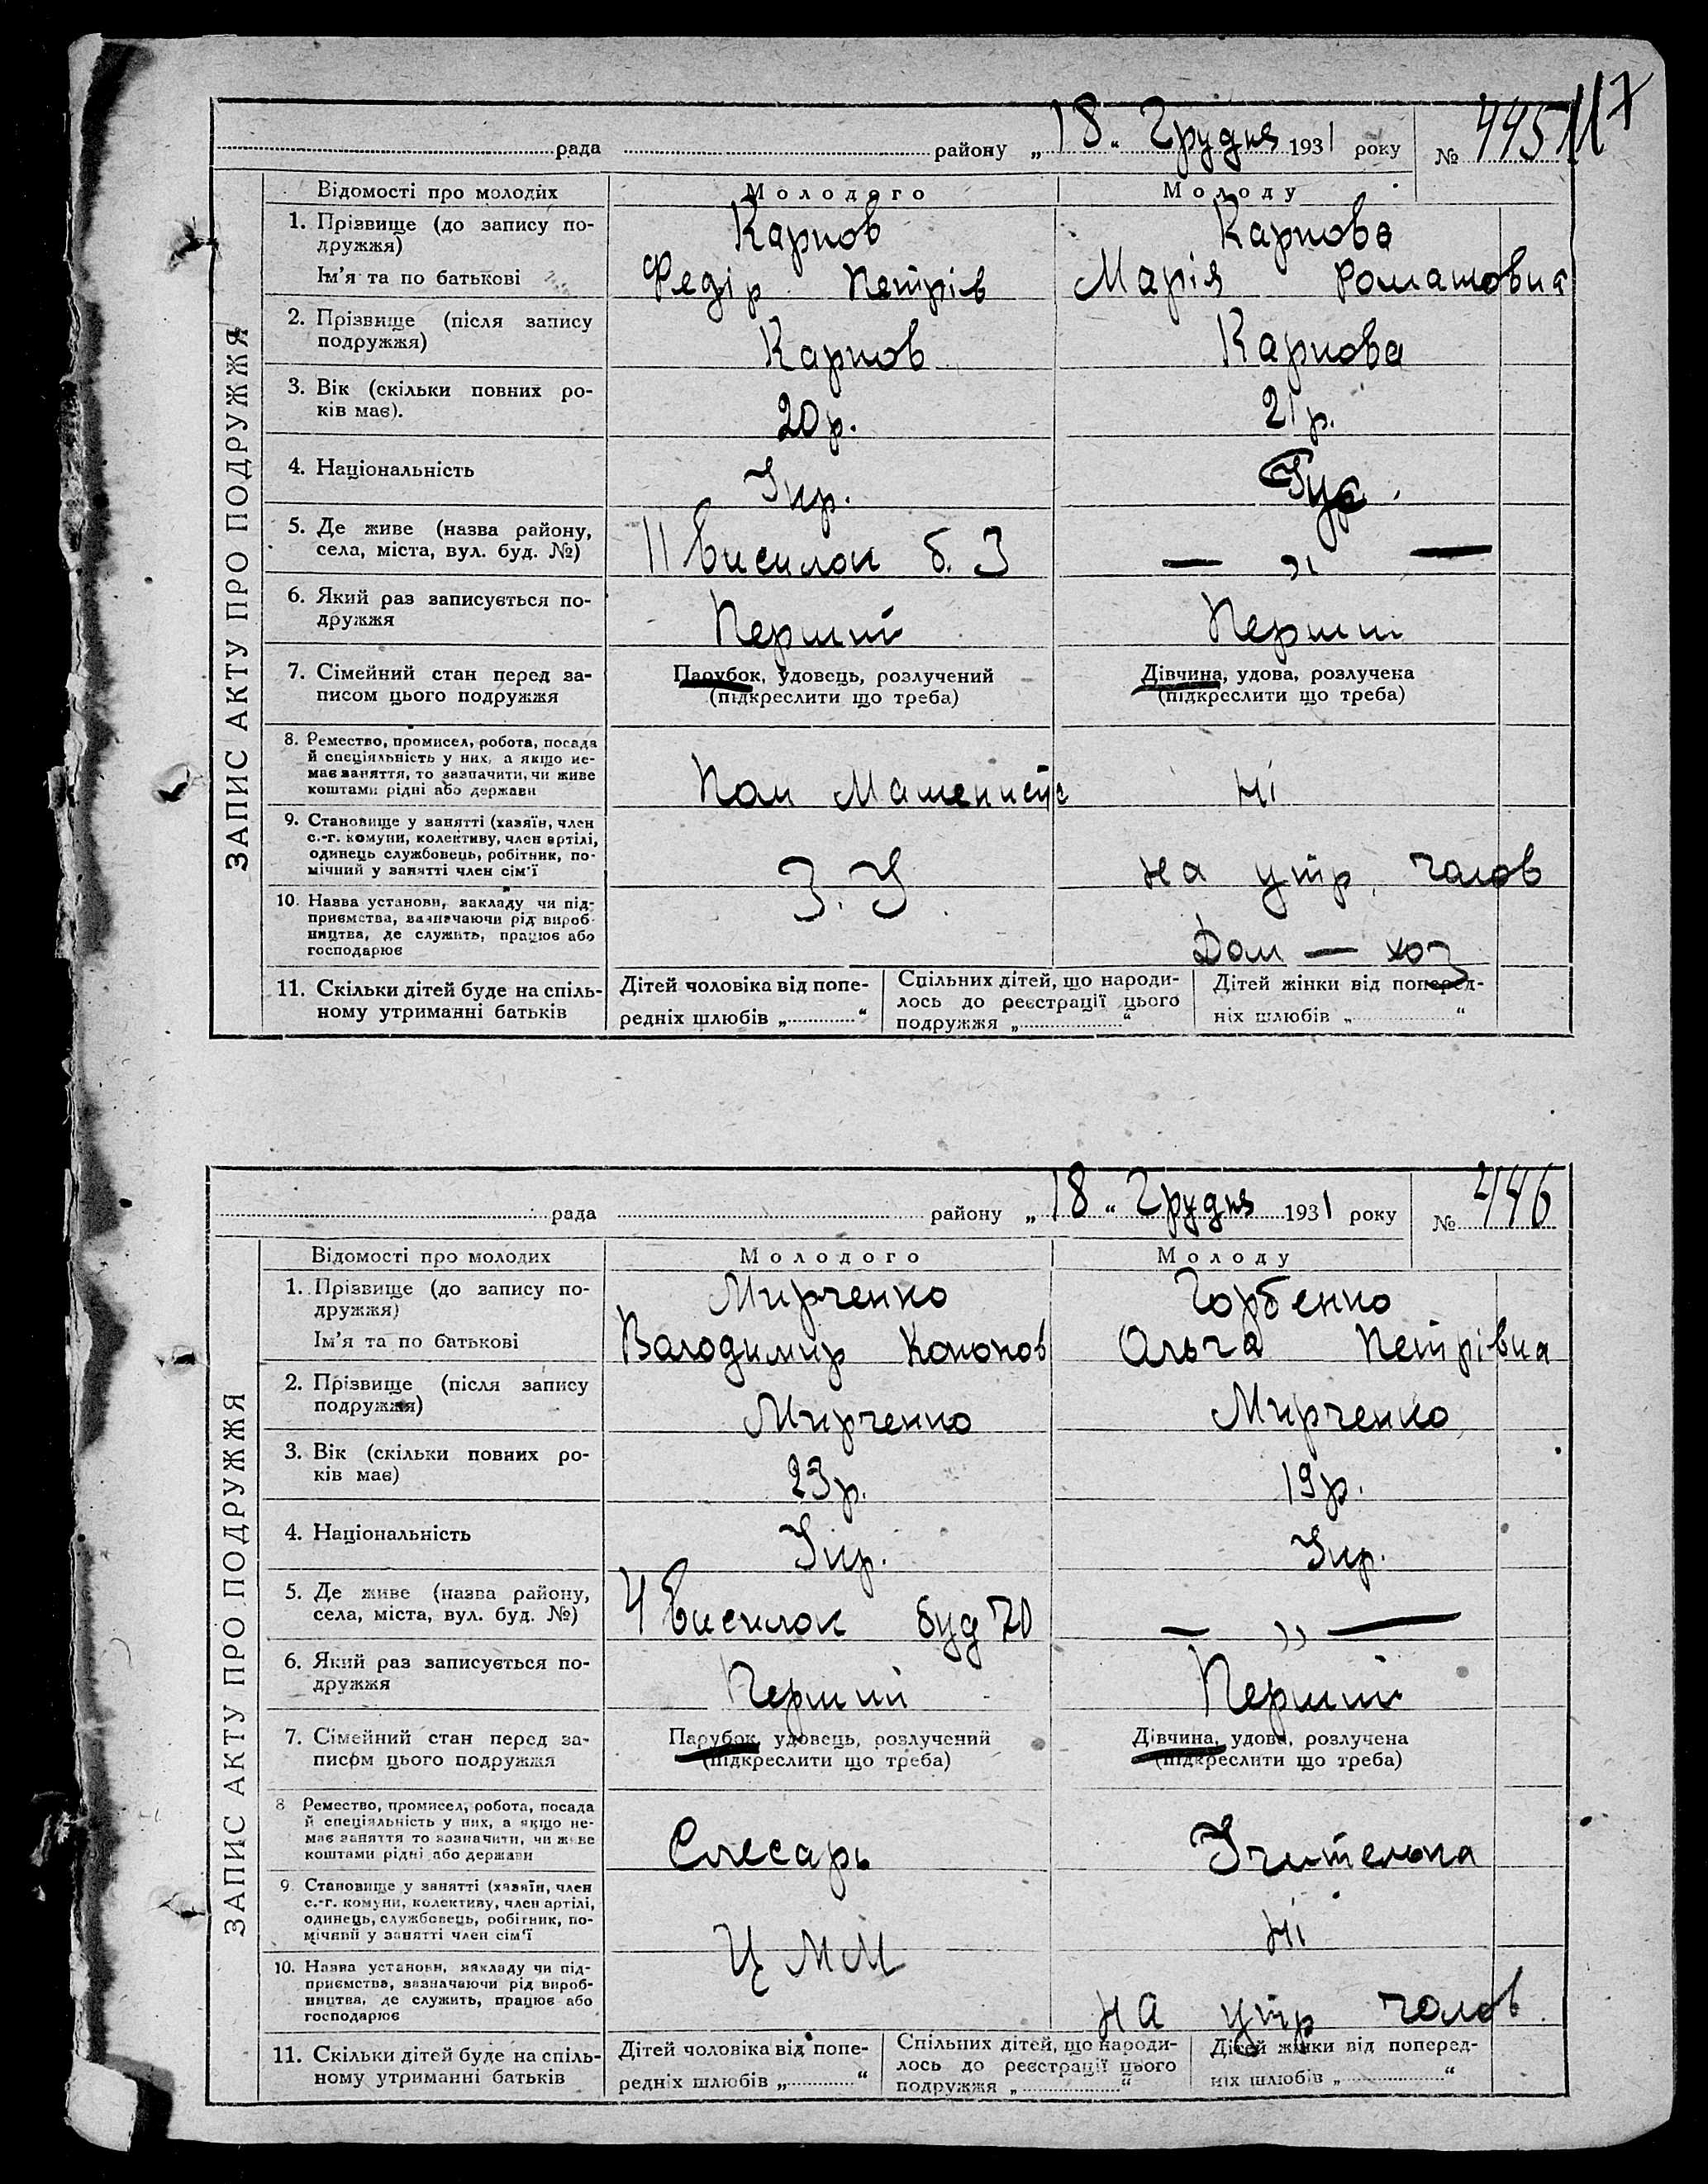 117
рада района „ 18 “ Грудня 1931 року № 445
ЗАПИС АКТУ ПРО ПОДРУЖЖЯ
Відомості про молодих Молодого Молоду
1. Прізвище (до запису по-
дружжя) Карпов Карпова
Ім'я та по батькові Федір Петрів Марія Романовна
2. Прізвище (після запису
подружжя) Карпов Карпова
3. Вік (скільки повних ро-
ків має). 20 р. 21 р.
4. Національність Укр.
5. Де живе (назва району,
села, міста, вул. буд. №) 11 Висилок б. 3 — „ —
6. Який раз записується по-
дружжя Перший Перший
7. Сімейний стан перед за- Парубок, удовець, розлучений Дівчина, удова, розлучена
писом цього подружжя (підкреслити що треба) (підкреслити що треба)
8. Ремество, промисел, робота, посада
й спеціяльність у них, а якщо не-
має заняття, то зазначити, чи живе
коштами рідні або держави Пом Машениста Ні
9. Становище у занятті (хазяїн, член
с.-г. комуни, колективу, член артілі,
одинець службовець, робітник, по-
мічний у занятті член сім'ї З. У на утр. чолов
10. Назва установи, закладу чи під-
приємства, зазначаючи рід вироб-
ництва, де служить, працює або
господарює Дом — хоз
11. Скільки дітей буде на спіль- Дітей чоловіка від попе- Спільних дітей, що народи- Дітей жінки від поперед-
ному утриманні батьків редніх шлюбів „ “ лось до реєстрації цього ніх шлюбів „ “
подружжя „ “
рада району „ 18 “ Грудня 1931 року № 446
ЗАПИС АКТУ ПРО ПОДРУЖЖЯ
Відомості про молодих Молодого Молоду
1. Прізвище (до запису по-
дружжя) Мирченко Горбенко
Ім'я та по батькові Володимир Кононов Ольга Петрівна
2. Прізвище (після запису
подружжя) Мирченко Мирченко
3. Вік (скільки повних ро-
ків має) 23 р. 19 р.
4. Національність Укр. Укр.
5. Де живе (назва району,
села, міста, вул. буд. №) 4 Висилок буд 70 — „ —
6. Який раз записується по-
дружжя Перший Перший
7. Сімейний стан перед за- Парубок, удовець, розлучений Дівчина, удова, розлучена
писом цього подружжя (підкреслити що треба) (підкреслити що треба)
8 Ремество, промисел, робота, посада
й спеціяльність у них, а якщо не-
має заняття то зазначити, чи живе
коштами рідні або держави Слесарь Учителька
9. Становище у занятті (хазяїн, член
с.-г. комуни, колективу, член артілі,
одинець, службовець, робітник, по-
мічний у занятті член сім'ї Ц М М Ні
10. Назва установи, закладу чи під-
приємства, зазначаючи рід вироб-
ництва, де служить, працює або
господарює на утр чолов
11. Скільки дітей буде на спіль- Дітей чоловіка від попе- Спільних дітей, що народи- Дітей жінки від поперед-
ному утриманні батьків редніх шлюбів „ “ лось до реєстрації цього ніх шлюбів „ “
подружжя „ “